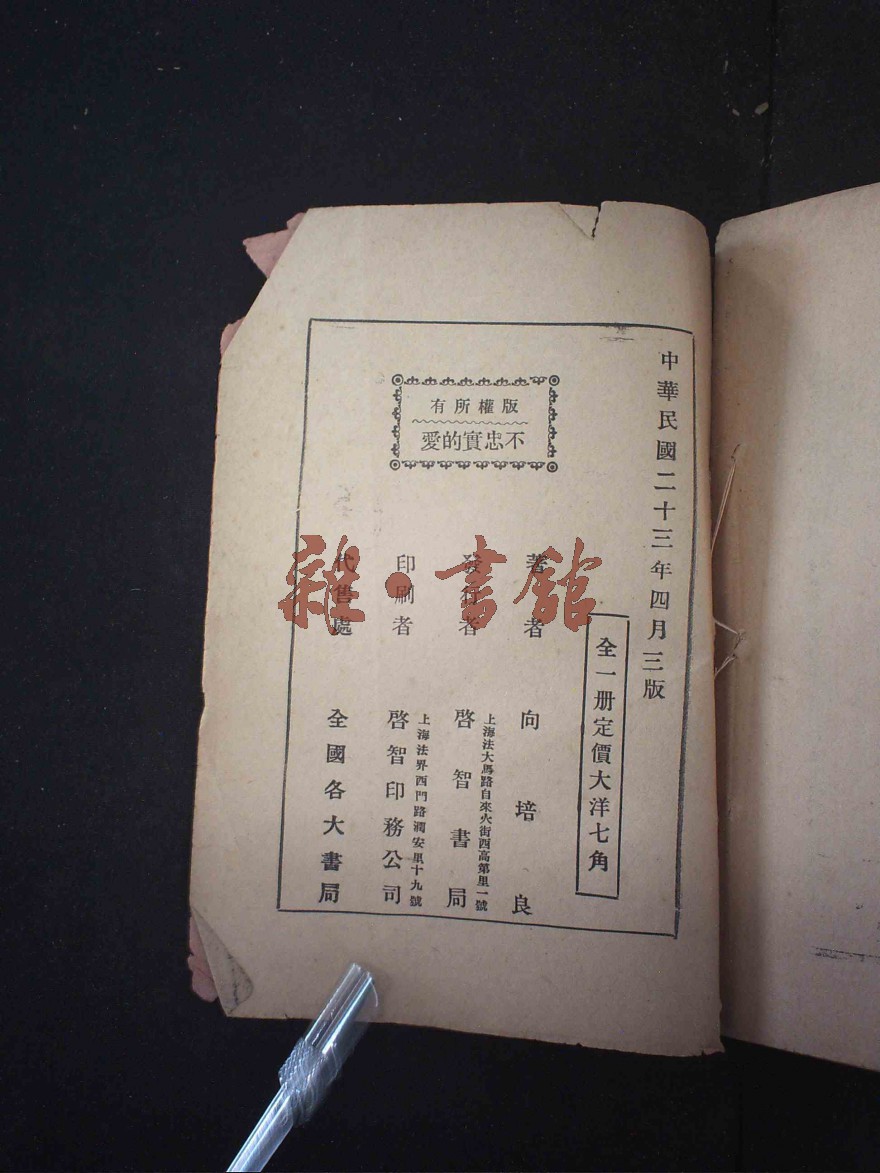 中華民國二十三年四月三版
全一册定價大洋七角
版權所有
不忠實的愛
著者　向培良
上海法大馬路自來火街西高第里一號
發行者　啓智書局
上海法界西門路潤安里十九號
印刷者　啓智印務公司
代售處　全國各大書局
雜·書館